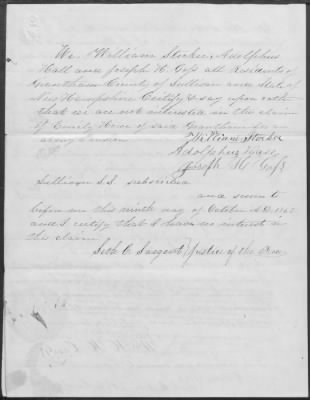 We, William Stocker, Adolphus
Hall and Joseph H. Goss all Residents of
Grantham County of Sullivan and State of
New Hampshire Certify & say upon oath
that we are not interested in the claim
of Emily Howe of said Grantham for an
army Pension
William Stocker
Adolphus Hall
Joseph H. Goss
Sullivan S.S. subscribed
and sworn to
before me this ninth day of October A.D.
and I certify that I have no interest in
this claim
Seth C. Sargent Justice of the Peace